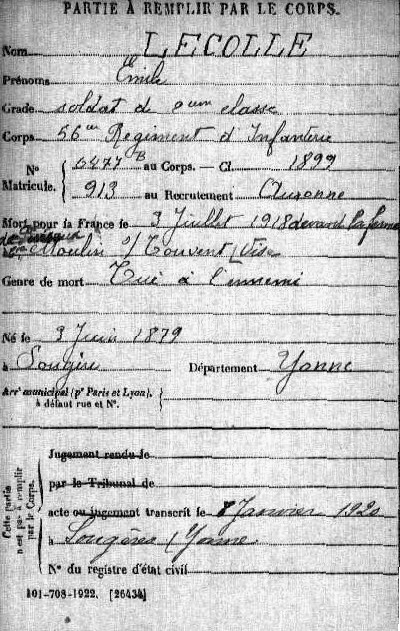 PARTIE À REMPLIR PAR LE CORPS.
Nom LECOLLE
Prénoms Emile
Grade soldat de 2eme classe
Corps 56me Regiment d'Infanterie
N° Matricule. 6477 B au Corps. — Cl. 1899
913 au Recrutement Auxonne
Mort pour la France le 3 Juillet 1918 devant la ferme
Moulin s/ Touvent (Oise
Genre de mort Tué à l'ennemi
Né le 3 Juin 1879
à Sougères Département Yonne
Arrt municipal (pr Paris et Lyon), à défaut rue et N°.
Cette partie n'est pas à remplir par le Corps.
Jugement rendu le
par le Tribunal de
acte ou jugement transcrit le 8 Janvier 1920
à Sougères (Yonne
N° du registre d'état civil
101-708-1922. [26434]